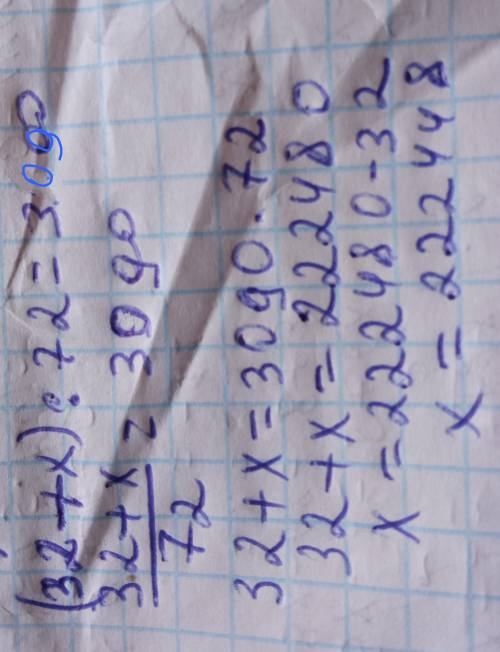 (32+x):72=3090
32+x/72 = 3090
32+x=3090·72
32+x=222480
x=222480-32
x=222448